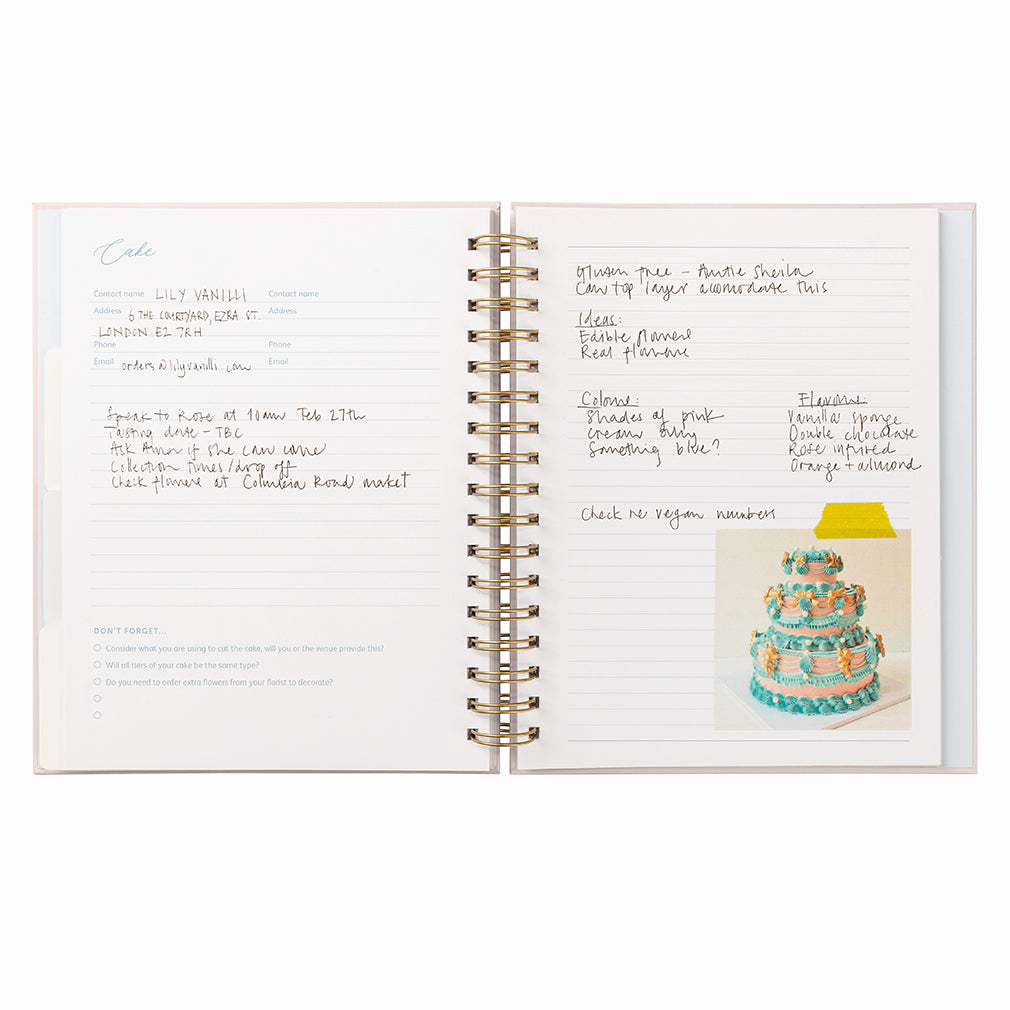 Cake
Contact name LILY VANILLI Contact name
Address 6 THE COURTYARD, EZRA ST. Address
LONDON E2 7RH
Phone Phone
Email orders@lilyvanilli.com Email
Speak to Rose at 10am Feb 27th
Tasting date - TBC
Ask Amer if she can come
Collection times/drop off
Check flowers at Columbia Road market
DON'T FORGET...
Consider what you are using to cut the cake, will you or the venue provide this?
Will all tiers of your cake be the same type?
Do you need to order extra flowers from your florist to decorate?
Gluten free - Auntie Sheila
Can top layer accomodate this
Ideas:
Edible flowers
Real flowers
Colours: Flavours:
Shades of pink Vanilla sponge
Cream Double chocolate
Something blue? Rose infused
Orange + almond
Check re vegan numbers